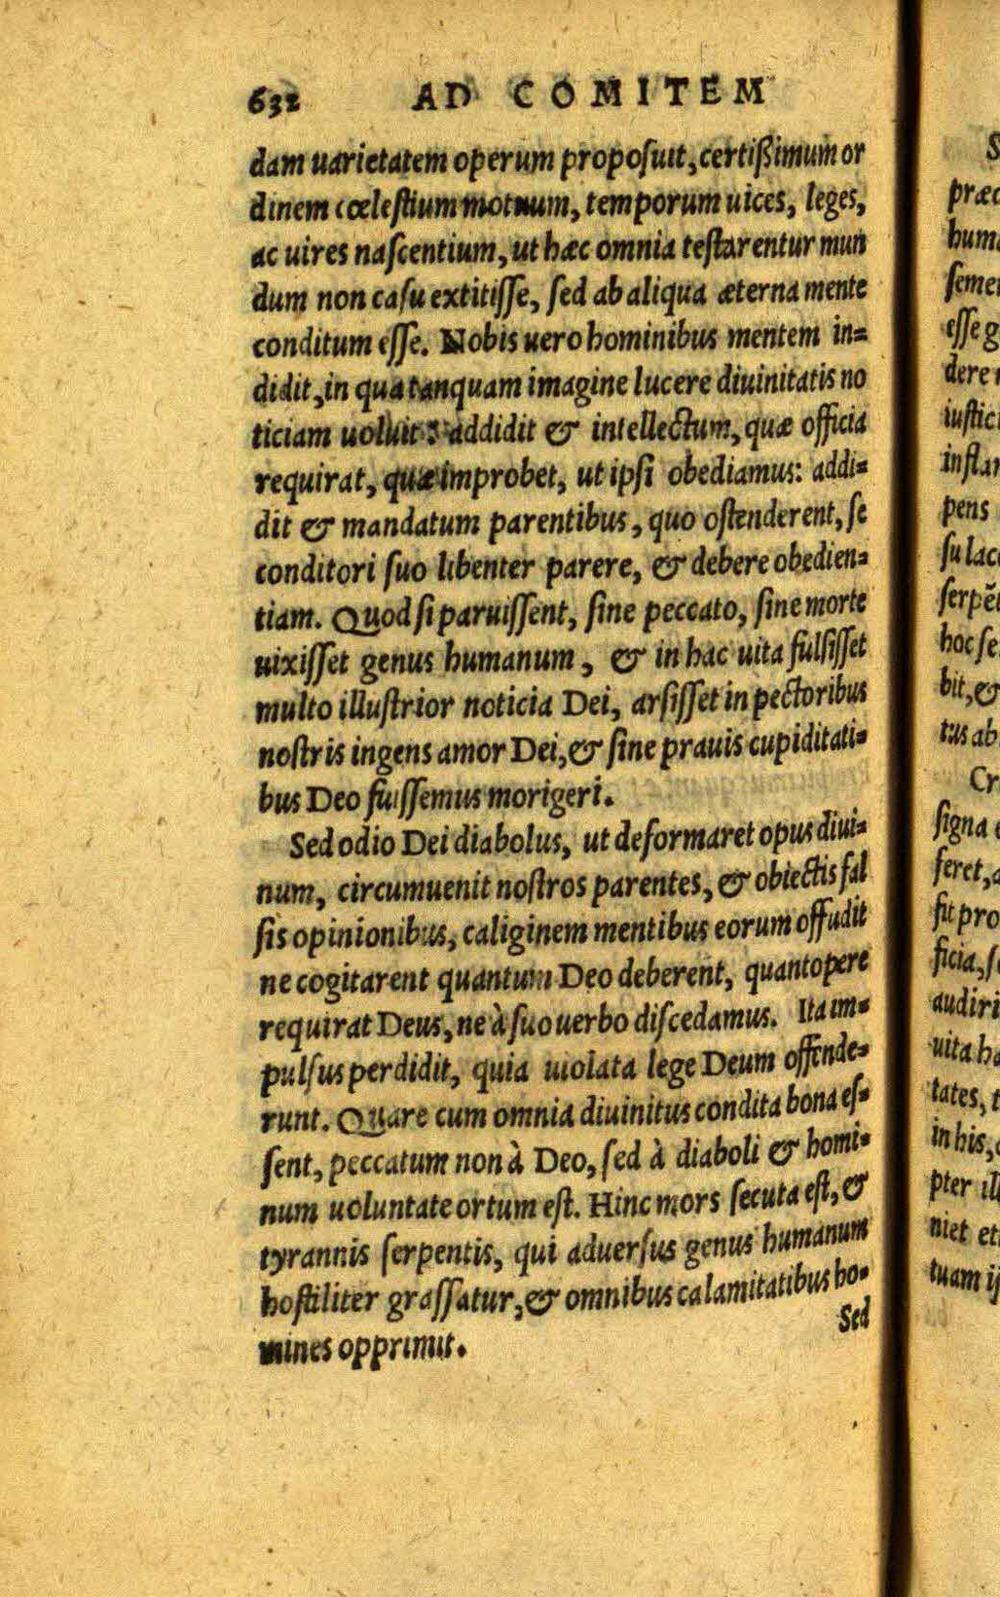 632 AD COMITEM
dam uarietatem operum proposuit, certißimum or
dinem cœlestium motuum, temporum uices, leges,
ac uires nascentium, ut hæc omnia testarentur mun
dum non casu extitisse, sed ab aliqua æterna mente
conditum esse. Nobis uero hominibus mentem in=
didit, in qua tanquam imagine lucere diuinitatis no
ticiam uoluit: addidit & intellectum, quæ officia
requirat, quæ improbet, ut ipsi obediamus: addi=
dit & mandatum parentibus, quo ostenderent, se
conditori suo libenter parere, & debere obedien=
tiam. Quod si paruissent, sine peccato, sine morte
uixisset genus humanum, & in hac uita fulsisset
multo illustrior noticia Dei, arsisset in pectoribus
nostris ingens amor Dei, & sine prauis cupiditati=
bus Deo fuissemus morigeri.
Sed odio Dei diabolus, ut deformaret opus diui=
num, circumuenit nostros parentes, & obiectis fal
sis opinionibus, caliginem mentibus eorum offudit
ne cogitarent quantum Deo deberent, quantopere
requirat Deus, ne à suo uerbo discedamus. Ita im=
pulsus perdidit, quia uiolata lege Deum offende=
runt. Quare cum omnia diuinitus condita bona es=
sent, peccatum non à Deo, sed à diaboli & homi=
num uoluntate ortum est. Hinc mors secuta est, &
tyrannis serpentis, qui aduersus genus humanum
hostiliter grassatur, & omnibus calamitatibus ho=
mines opprimit.
Sed
præc
huma
semet
esse g
dere
iustic
instar
pens
su lace
serpẽ
hoc se
bit, &
tus ab
Cr
signa
feret,
sit pro
ficia, s
audiri
uita ha
tates, t
in his,
pter il
niet et
tuam ij